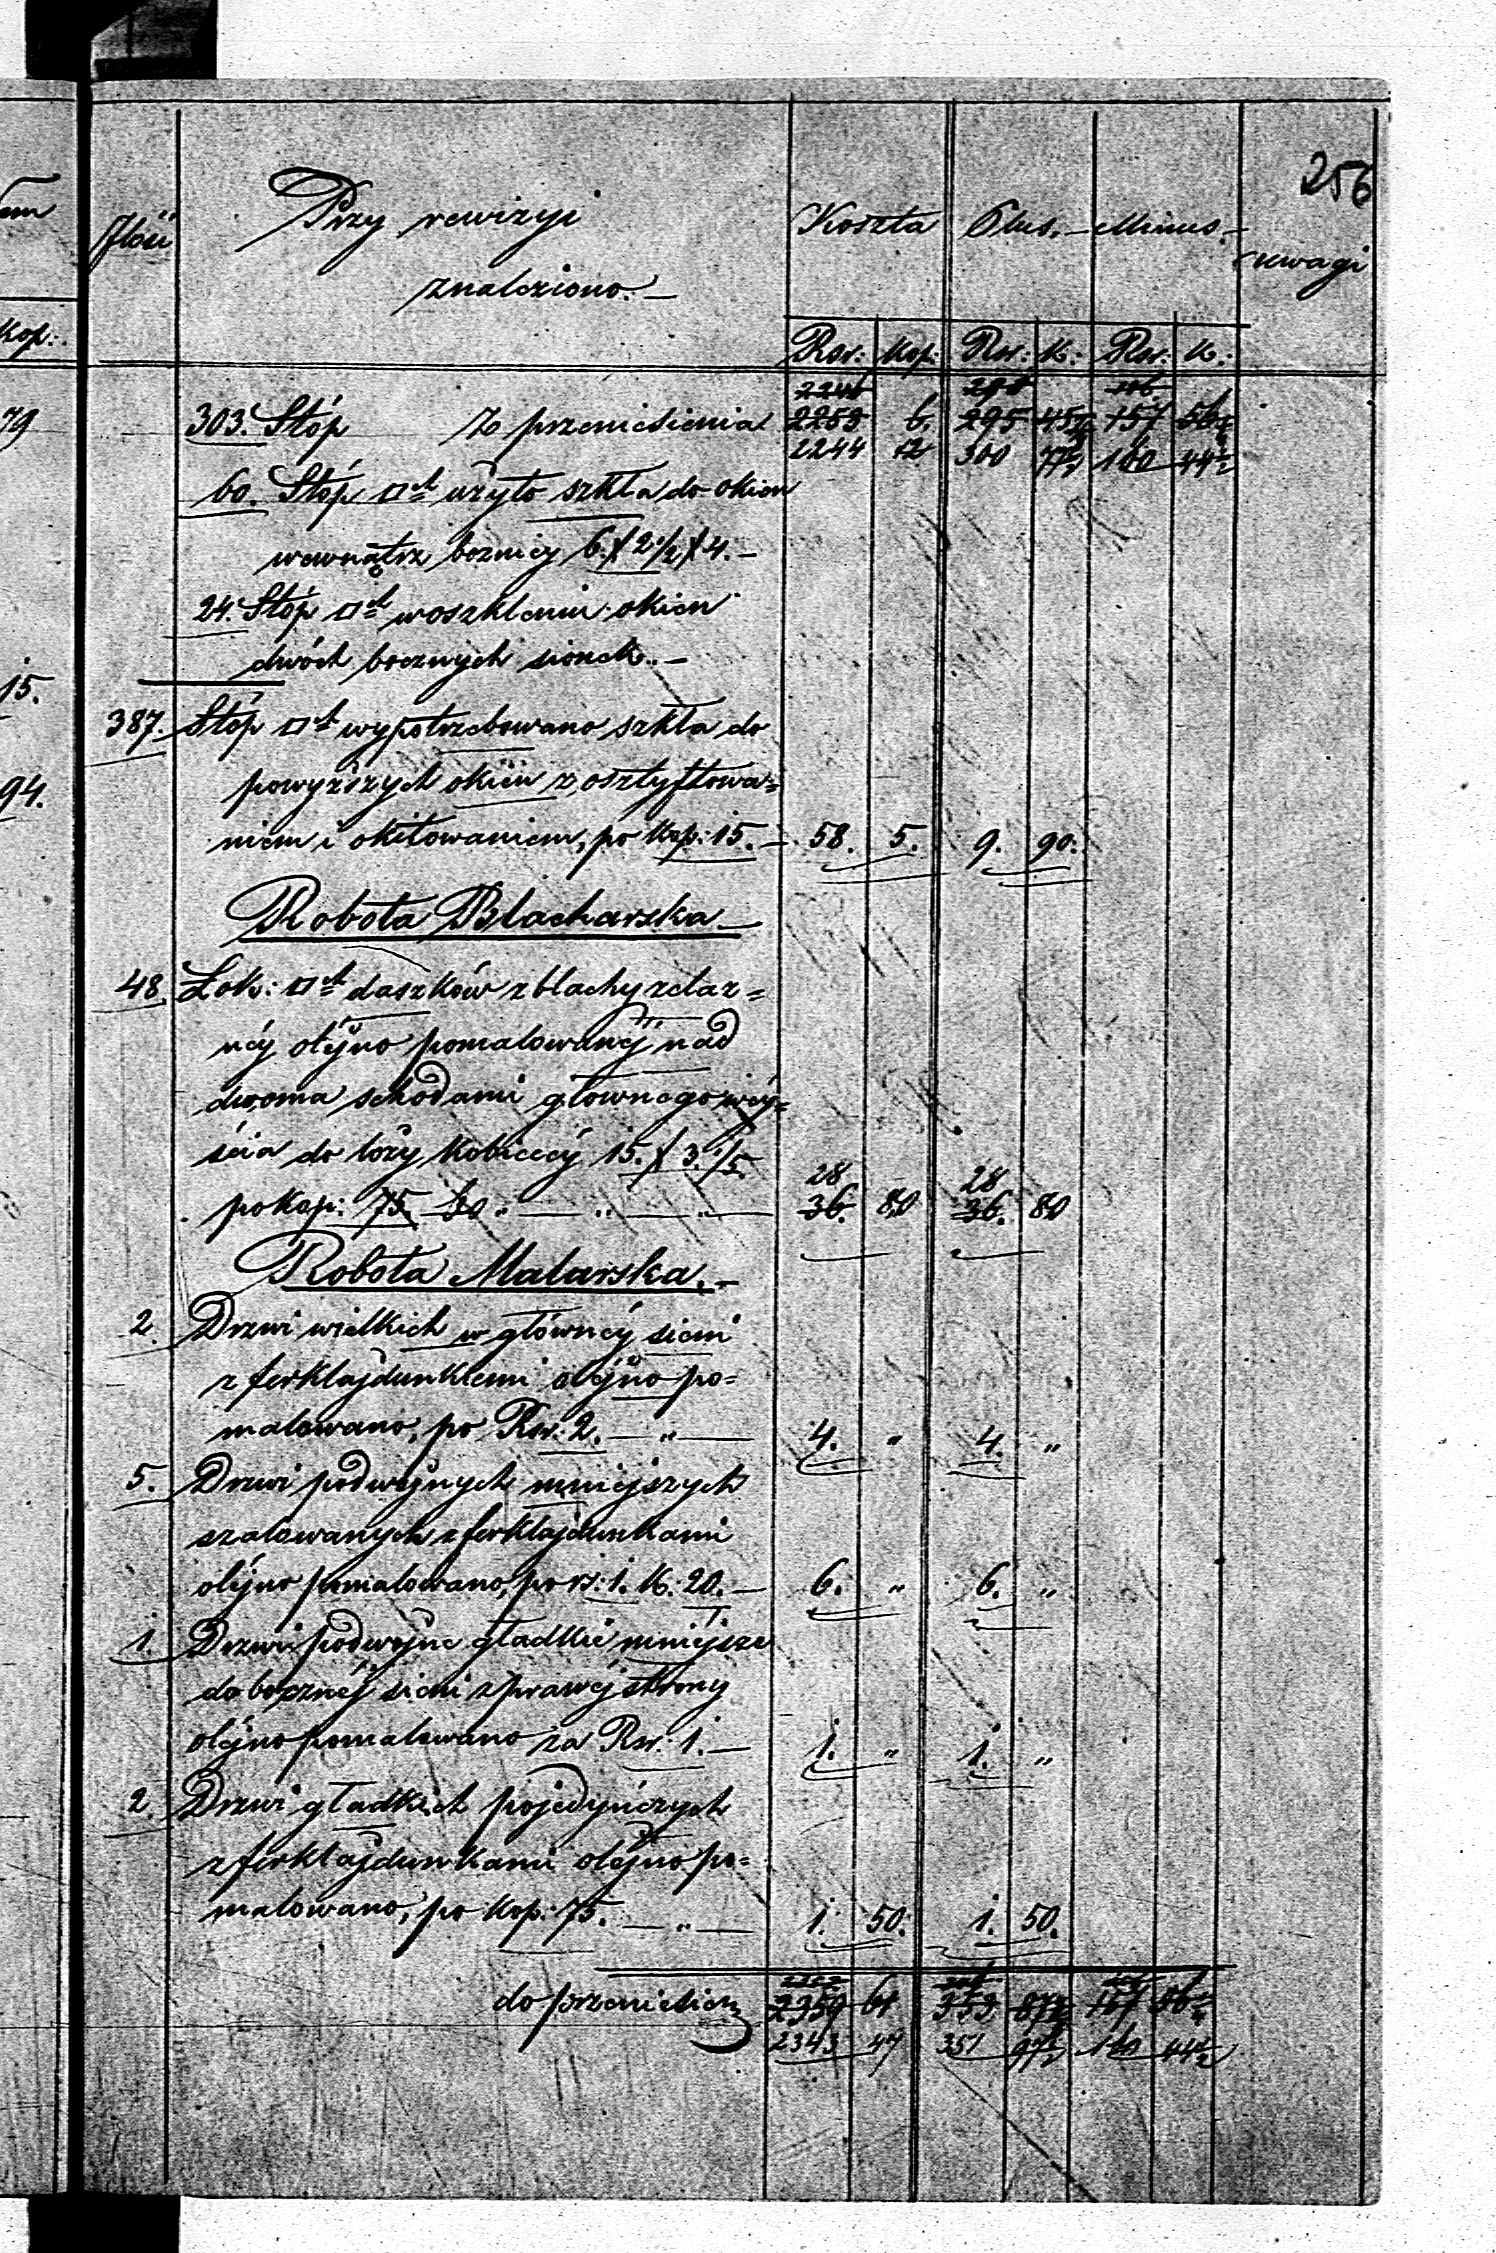 256
em
Ilość Przy rewizyi Koszta Plus. — Minus. —
znaleziono. — uwagi
kop: Rsr: Kop: Rsr: K: Rsr: K:
79 303. Stóp Z przeniesienia 2258 6. 295 45½ 157 56½
2244 12 300 77½ 160 44½
60. Stóp □wt użyto szkła do okien
wewnątrz boznicy 6. / 2.½ / 4. —
24. Stóp □wt w oszkleniu okien
15. dwóch bocznych sionek. —
387. Stóp □wt wypotrzebowano szkła do
94. powyższych okien z, osztyftowa=
niem i okitowaniem, po Kop: 15. — 58. 5. 9. 90.
Robota Blacharska —
48 Łok: □wt daszków z blachy żelaz=
néy oléyno pomalowanéj nad
dwoma schodami głownego wéy=
ścia do loży kobiecéy 15. / 3.1/5. 28 28
po Kop: 75. 60 „ — „ — „ — 36. 80 36. 80
Robota Malarska. —
2. Drzwi wielkich w głównéy sieni
z ferklajdunkiemi oléjno po=
malowano, po Rsr: 2. — „ — 4. „ 4. „
5. Drzwi podwojnych mniejszych
szalowanych z ferklajdunkami
oléjno pomalowano, po rs: 1. K: 20. — 6. „ 6. „
1 Drzwi podwojne gładkie mniéjsze
do bocznéj sieni z prawéj strony
oléjno pomalowano za Rsr: 1. — 1. „ 1. „
2 Drzwi gładkich pojedyńczych
z ferklajdunkami oléjno po=
malowano, po Kop: 75. — „ — 1. 50. 1. 50.
do przeniesienia 2359 61 353 87½ 157 56½
2343 47 351 97½ 160 44½